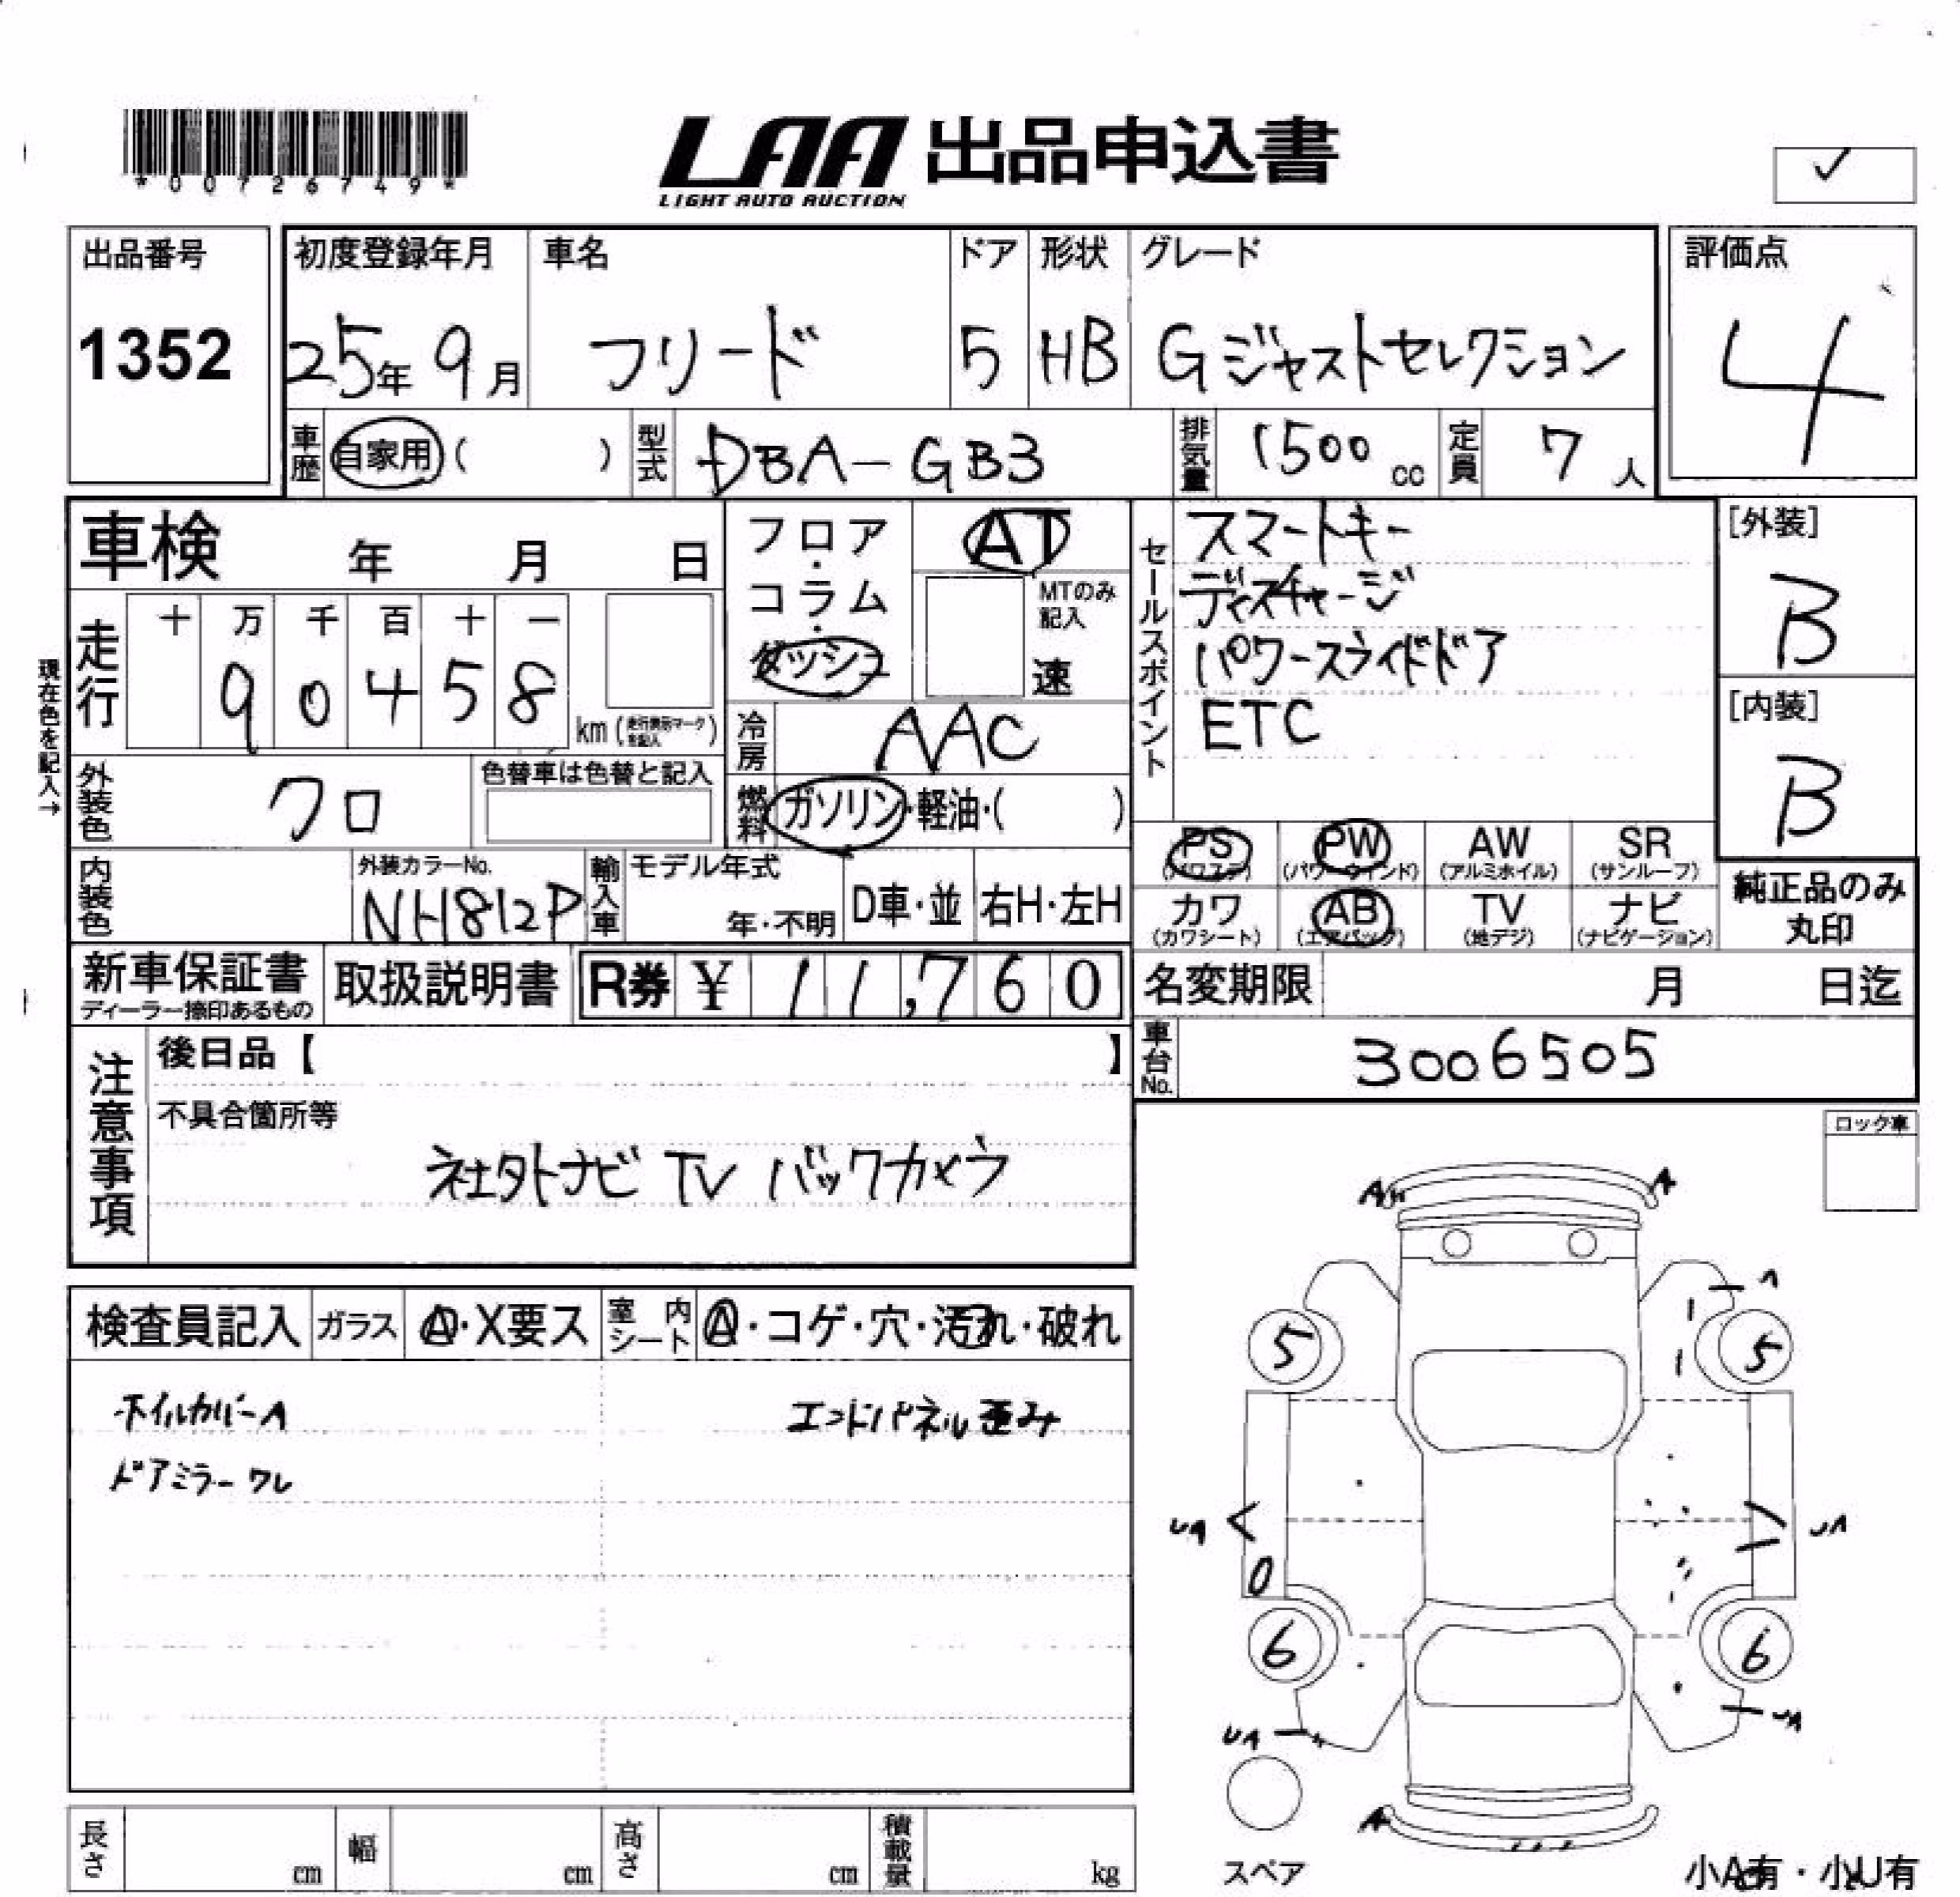 *00726749*
LAA 出品申込書
LIGHT AUTO AUCTION
✓
出品番号
1352
初度登録年月
25年9月
車名
フリード
ドア
5
形状
HB
グレード
Gジャストセレクション
評価点
4
車歴
自家用( )
型式
DBA-GB3
排気量
1500cc
定員
7人
車検 年 月 日
フロア・コラム・ダッシュ
AT
MTのみ記入
速
セールスポイント
スマートキー
ディスチャージ
パワースライドドア
ETC
[外装]
B
[内装]
B
現在色を記入→
走行
十 万 千 百 十 一
9 0 4 5 8
km(走行表示マークを記入)
冷房
AAC
外装色
クロ
色替車は色替と記入
燃料
ガソリン・軽油・( )
PS
(パワステ)
PW
(パワーウインド)
AW
(アルミホイル)
SR
(サンルーフ)
カワ
(カワシート)
AB
(エアバック)
TV
(地デジ)
ナビ
(ナビゲーション)
純正品のみ
丸印
内装色
外装カラーNo.
NH812P
輸入車
モデル年式
年・不明
D車・並
右H・左H
新車保証書
ディーラー捺印あるもの
取扱説明書
R券 ¥ 11,760
名変期限 月 日迄
車台No.
3006505
注意事項
後日品【 】
不具合箇所等
社外ナビ TV バックカメラ
ロック車
検査員記入
ガラス
A・X要ス
室内シート
A・コゲ・穴・汚れ・破れ
ホイルカバーA
エンドパネル歪み
ドアミラーワレ
A A
A
5 5
UA UA
0
6 6
UA UA
A
スペア
小A有・小U有
長さ cm
幅 cm
高さ cm
積載量 kg